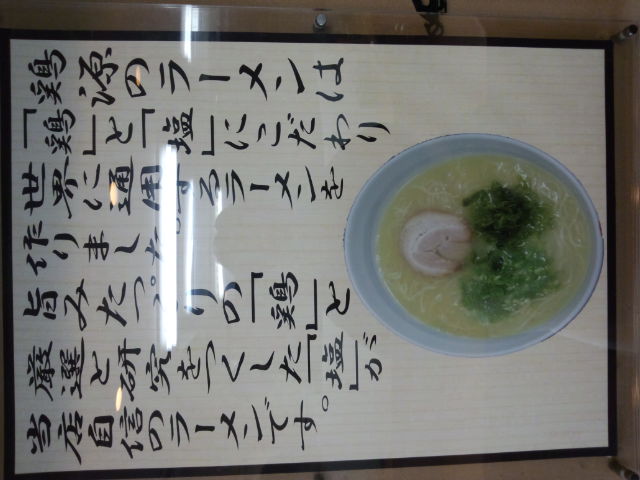 鶏源のラーメンは
「鶏」と「塩」にこだわり
世界に通用するラーメンを
作りました。
旨みたっぷりの「鶏」と
厳選と研究をつくした「塩」が
当店自信のラーメンです。